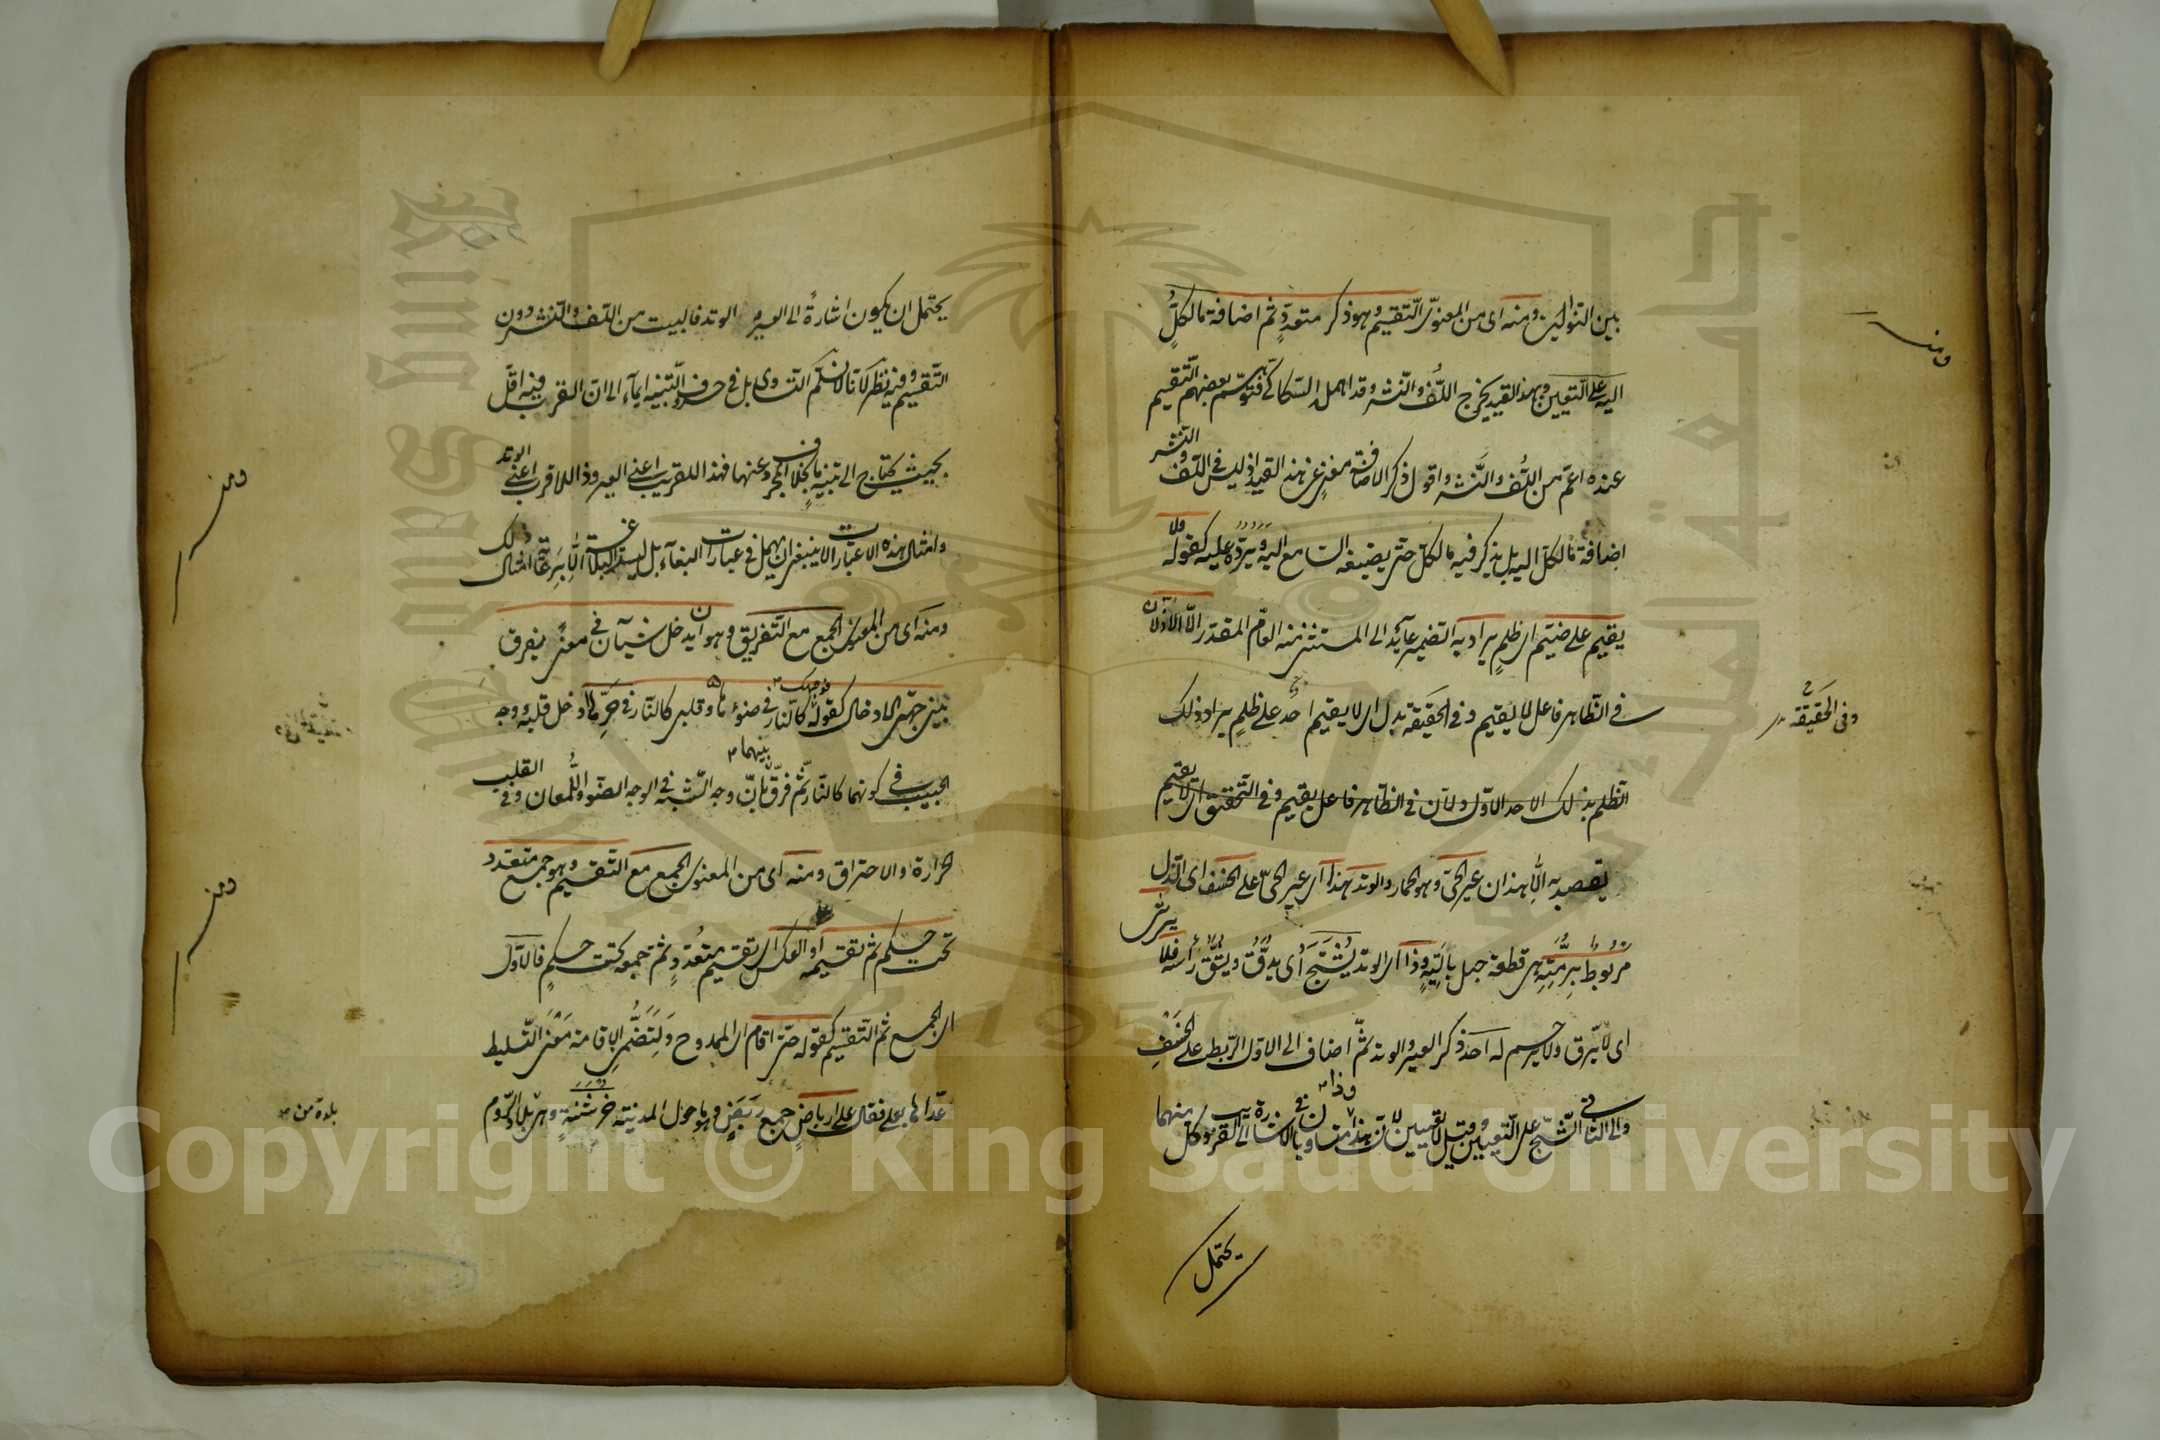 بين النوالين ومنه اى من المعنوىّ التّقسيم وهو ذكر متعدّدٍ ثم اضافة ما لكلٍّ
اليه على التّعيين وبهذا القيد يخرج اللّف والنّشر وقد اهمل السّكاكى فتوهّم بعضهم انّ التقسيم
عنده اعمّ من اللّف والنّشر واقول ذكر الاضافة مغنٍ عن هذا القيد اذ ليس فى اللّف والنّشر
اضافة ما لكلّ اليه بل يذكر فيه ما لكلّ حتى يضيفه السّامع اليه ويردّه عليه كقوله ولا
يقيم على ضيم اى ظلمٍ يراد به الضمير عائد الى المستثنى منه العامّ المقدّر الّا الاذلّان
فى الظاهر فاعل لا يقيم وفى الحقيقة بدل اى لا يقيم احد على ظلمٍ يراد ذلك
الظلم بذلك الاحد الاول ولان فى الظاهر فاعل يقيم وفى التحقيق اى لا يقيم
يقصد به الّا هذان عير الحىّ وهو الحمار والوتد هذا اى عير الحىّ على الخسف اى الذل
مربوط برمّته هى قطعة حبل بالية وذا اى الوتد يشجّ اى يدقّ ويشقّ رأسه فلا يرثى
اى لا يرق ولا يرحم له احد ذكر العير والوتد ثمّ اضاف الى الاول الربط على الخسف
والى الثانى الشّجّ على التعيين وقيل لا تعيين لانّ هذا وذا متساويان فى الاشارة الى القريب وكل منهما
يحتمل
ومنه
وفى الحقيقة
يحتمل ان يكون اشارةً الى العير والوتد فالبيت من اللّف والنشر دون
التقسيم وفيه نظر لانّا لا نسلّم التّساوى بل فى حرف التنبيه ايماء الى ان القرب فيه اقلّ
بحيث يحتاج الى تنبيه ما بخلاف المجرد عنها فهذا للقريب اعنى العير وذا للاقرب اعنى الوتد
وامثال هذه الاعتبارات لا ينبغى ان يهمل فى عبارات البلغاء بل ليست البلاغة الّا برعاية امثال ذلك
ومنه اى من المعنوى الجمع مع التّفريق وهو ان يدخل شيآن فى معنى ويفرق
بين جهتى الادخال كقوله فوجهك كالنّار فى ضوئها وقلبى كالنّار فى حرّها ادخل قلبه ووجه
الحبيب فى كونهما كالنّار ثم فرّق بينهما بانّ وجه الشّبه فى الوجه الضّوء واللّمعان وفى القلب
الحرارة والاحتراق ومنه اى من المعنوى الجمع مع التّقسيم وهو جمع متعدد
تحت حكم ثم تقسيمه او العكس اى تقسيم متعددٍ ثم جمعه تحت حكمٍ فالاول
اى الجمع ثم التّقسيم كقوله حتى اقام اى الممدوح ولتضمّن الاقامة معنى التّسليط
عدّاها بعلى فقال على ارباض جمع ربض وهو ما حول المدينة خرشنة وهى بلدة من بلاد الروم
ومنه
ومنه
بلدة من